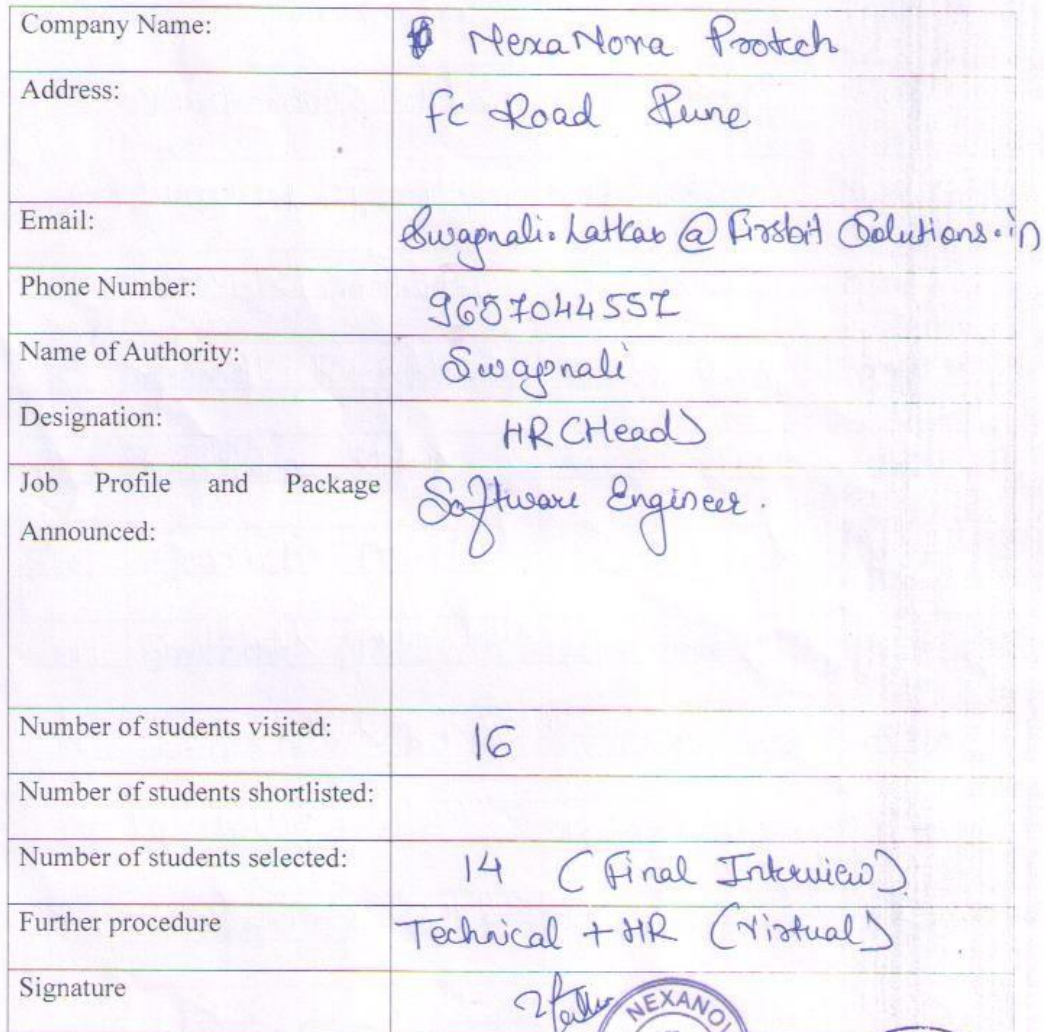 Company Name: NexaNova Protech
Address: Fc Road Pune
Email: Swapnali.Latkar@FirstbitSolutions.in
Phone Number:
Name of Authority: Swapnali
Designation: HR (Head)
Job Profile and Package Software Engineer.
Announced:
Number of students visited: 16
Number of students shortlisted:
Number of students selected: 14 (Final Interview)
Further procedure Technical + HR (Virtual)
Signature
NEXANO